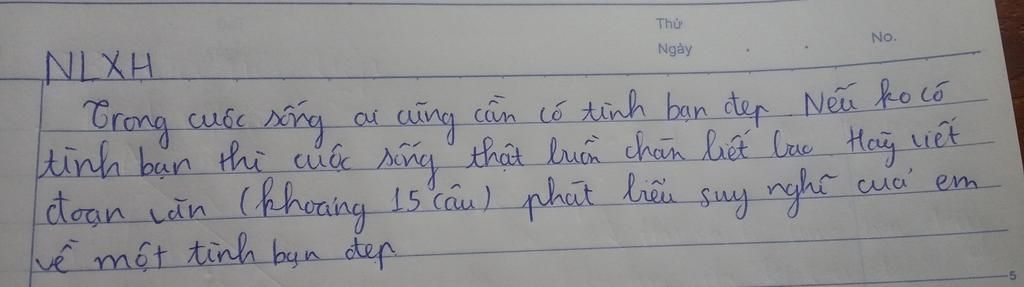 Thứ
Ngày . .
No.
NLXH
Trong cuộc sống ai cũng cần có tình bạn đẹp Nếu ko có
tình bạn thì cuộc sống thật buồn chán biết bao Hãy viết
đoạn văn (khoảng 15 câu) phát biểu suy nghĩ của em
về một tình bạn đẹp
5